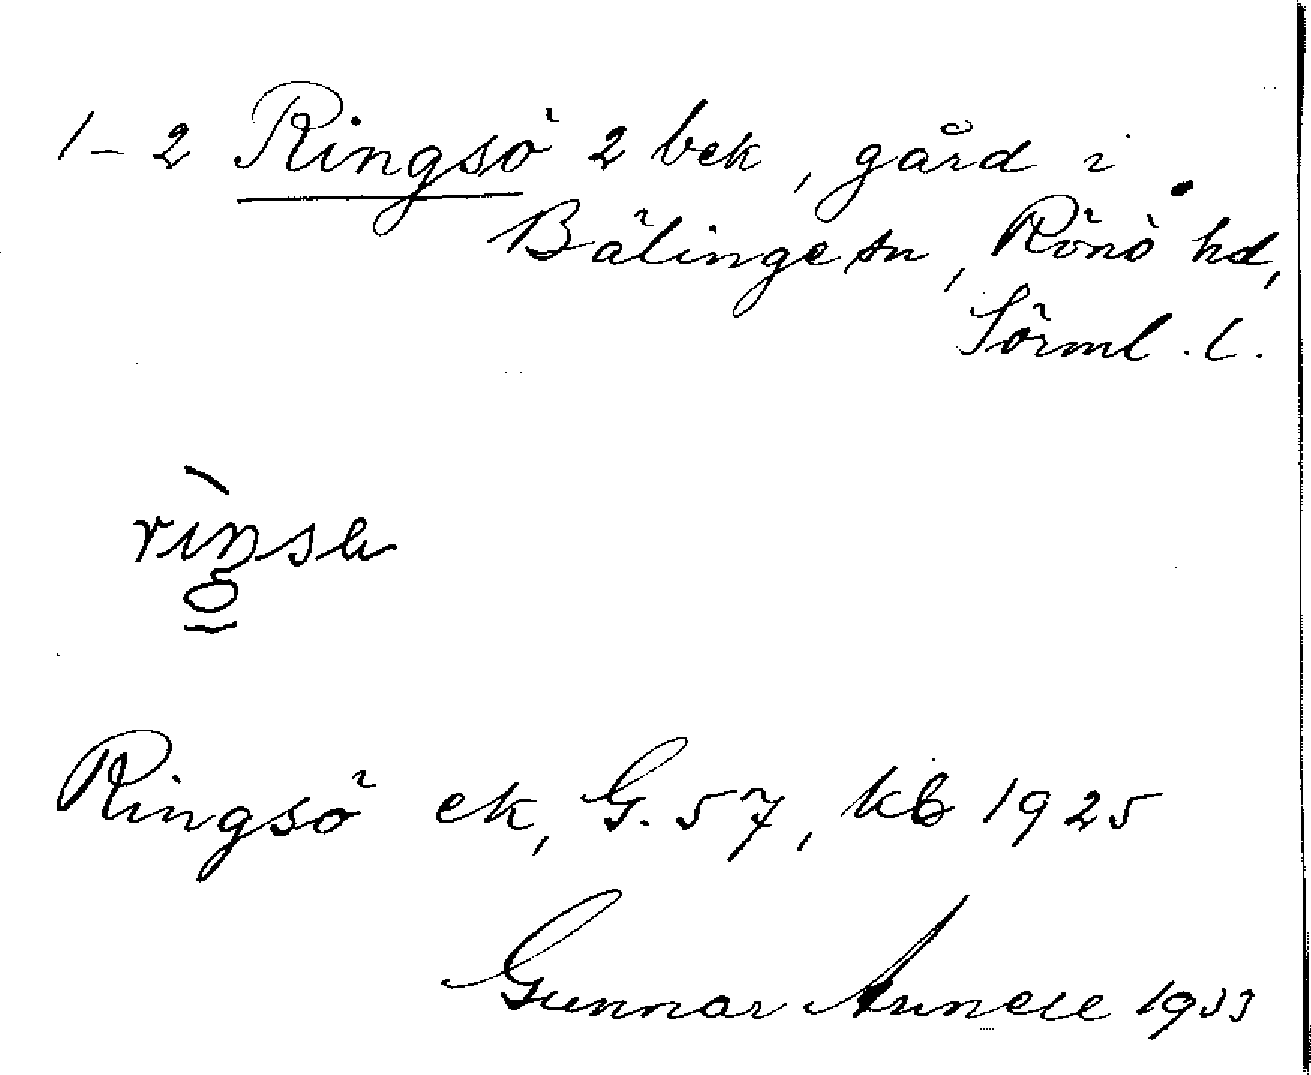 1–2 Ringsö 2 bek, gård i
Bälinge sn, Rönö hd,
Sörml. l.
Ringsö ek, G. 57, kb 1925
Gunnar Annell 1933